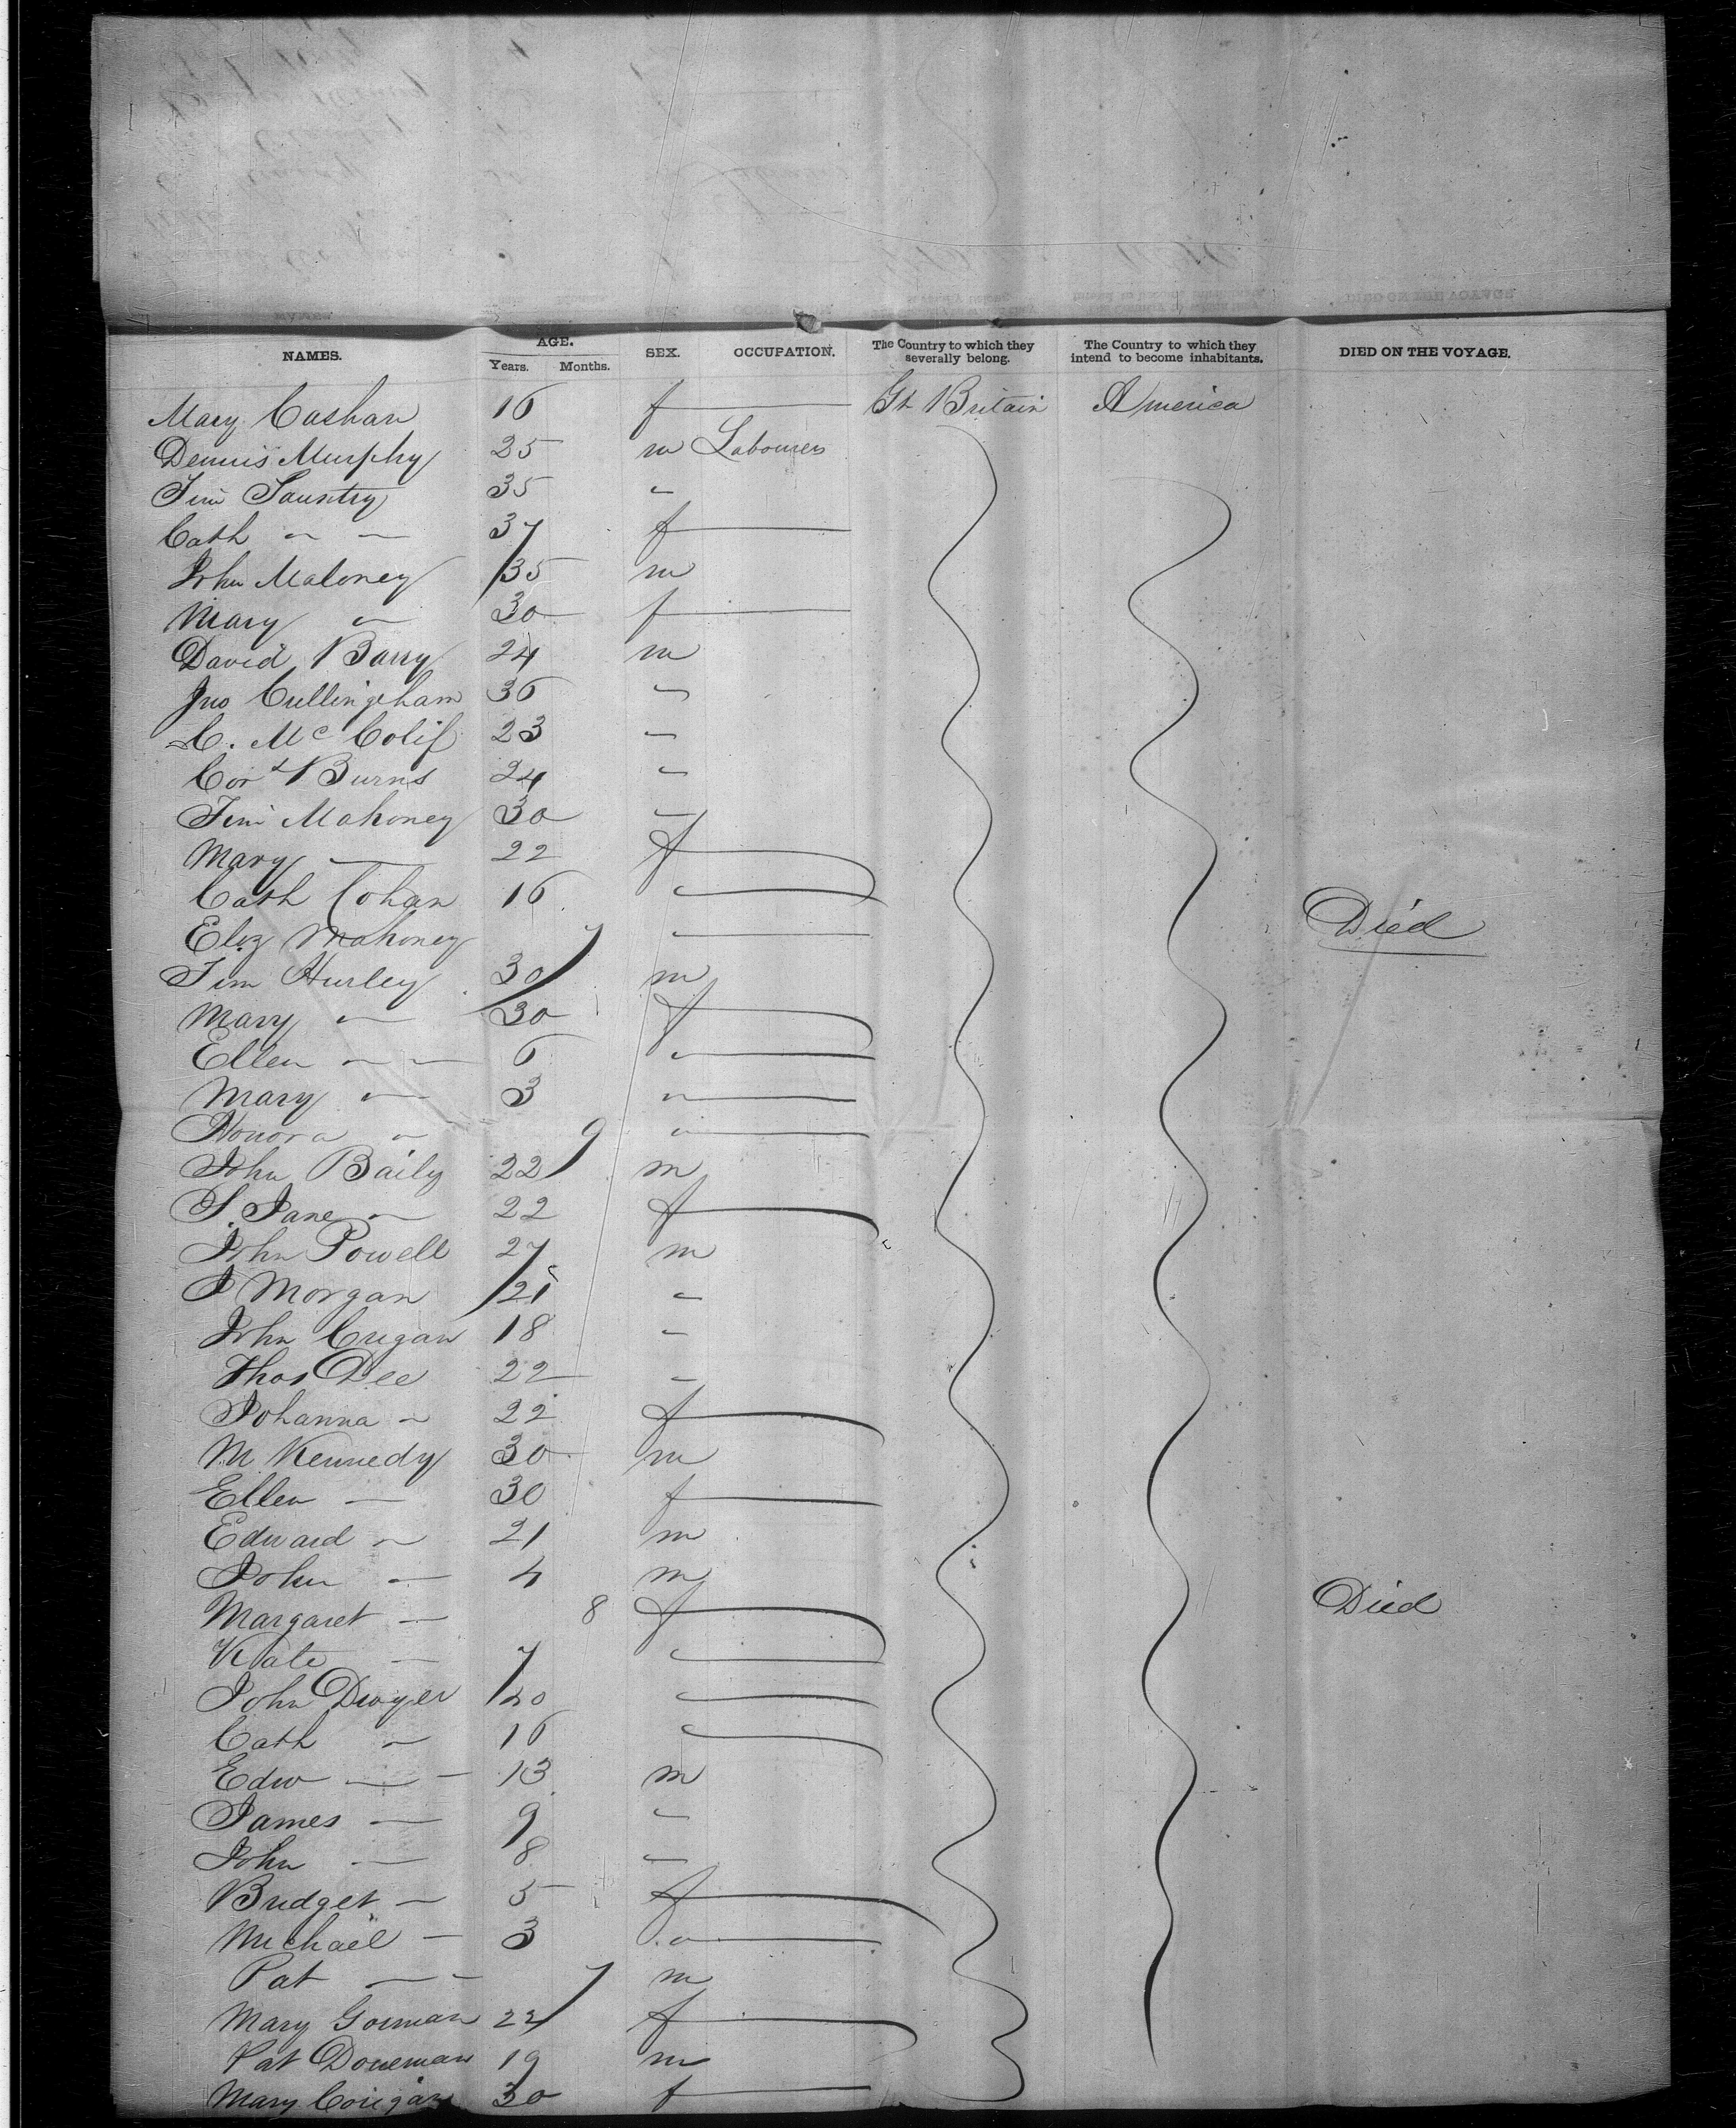 NAMES. AGE. Years. Months. SEX. OCCUPATION. The Country to which they severally belong. The Country to which they intend to become inhabitants. DIED ON THE VOYAGE.
Mary Cashan 16 f Gt Britain America
Dennis Murphy 25 m Labourers
Tim Sauntry 35 "
Cath " 37 f
John Maloney 35 m
Mary " 30 f
David Barry 24 m
Jno Cullingham 36 "
C. McColif 23 "
Cor Burns 24 "
Tim Mahoney 30 "
Mary 22 f
Cath Cohan 16 "
Eliz Mahoney 7 " Died
Tim Hurley 30 m
Mary " 30 f
Ellen " 6 "
Mary " 3 "
Honora " 9 "
John Baily 22 m
S. Jane " 22 f
John Powell 27 m
J Morgan 21 "
John Crigan 18 "
Thos Dee 22 "
Johanna " 22 f
M Kennedy 30 m
Ellen " 30 f
Edward " 21 m
John " 4 m
Margaret " 8 f Died
Kate " 7 "
John Dwyer 40 "
Cath " 16 "
Edw " 13 m
James " 9 "
John " 8 "
Bridget " 5 f
Michael " 3 "
Pat " 7 m
Mary Gorman 22 f
Pat Doneman 19 m
Mary Corigan 30 f